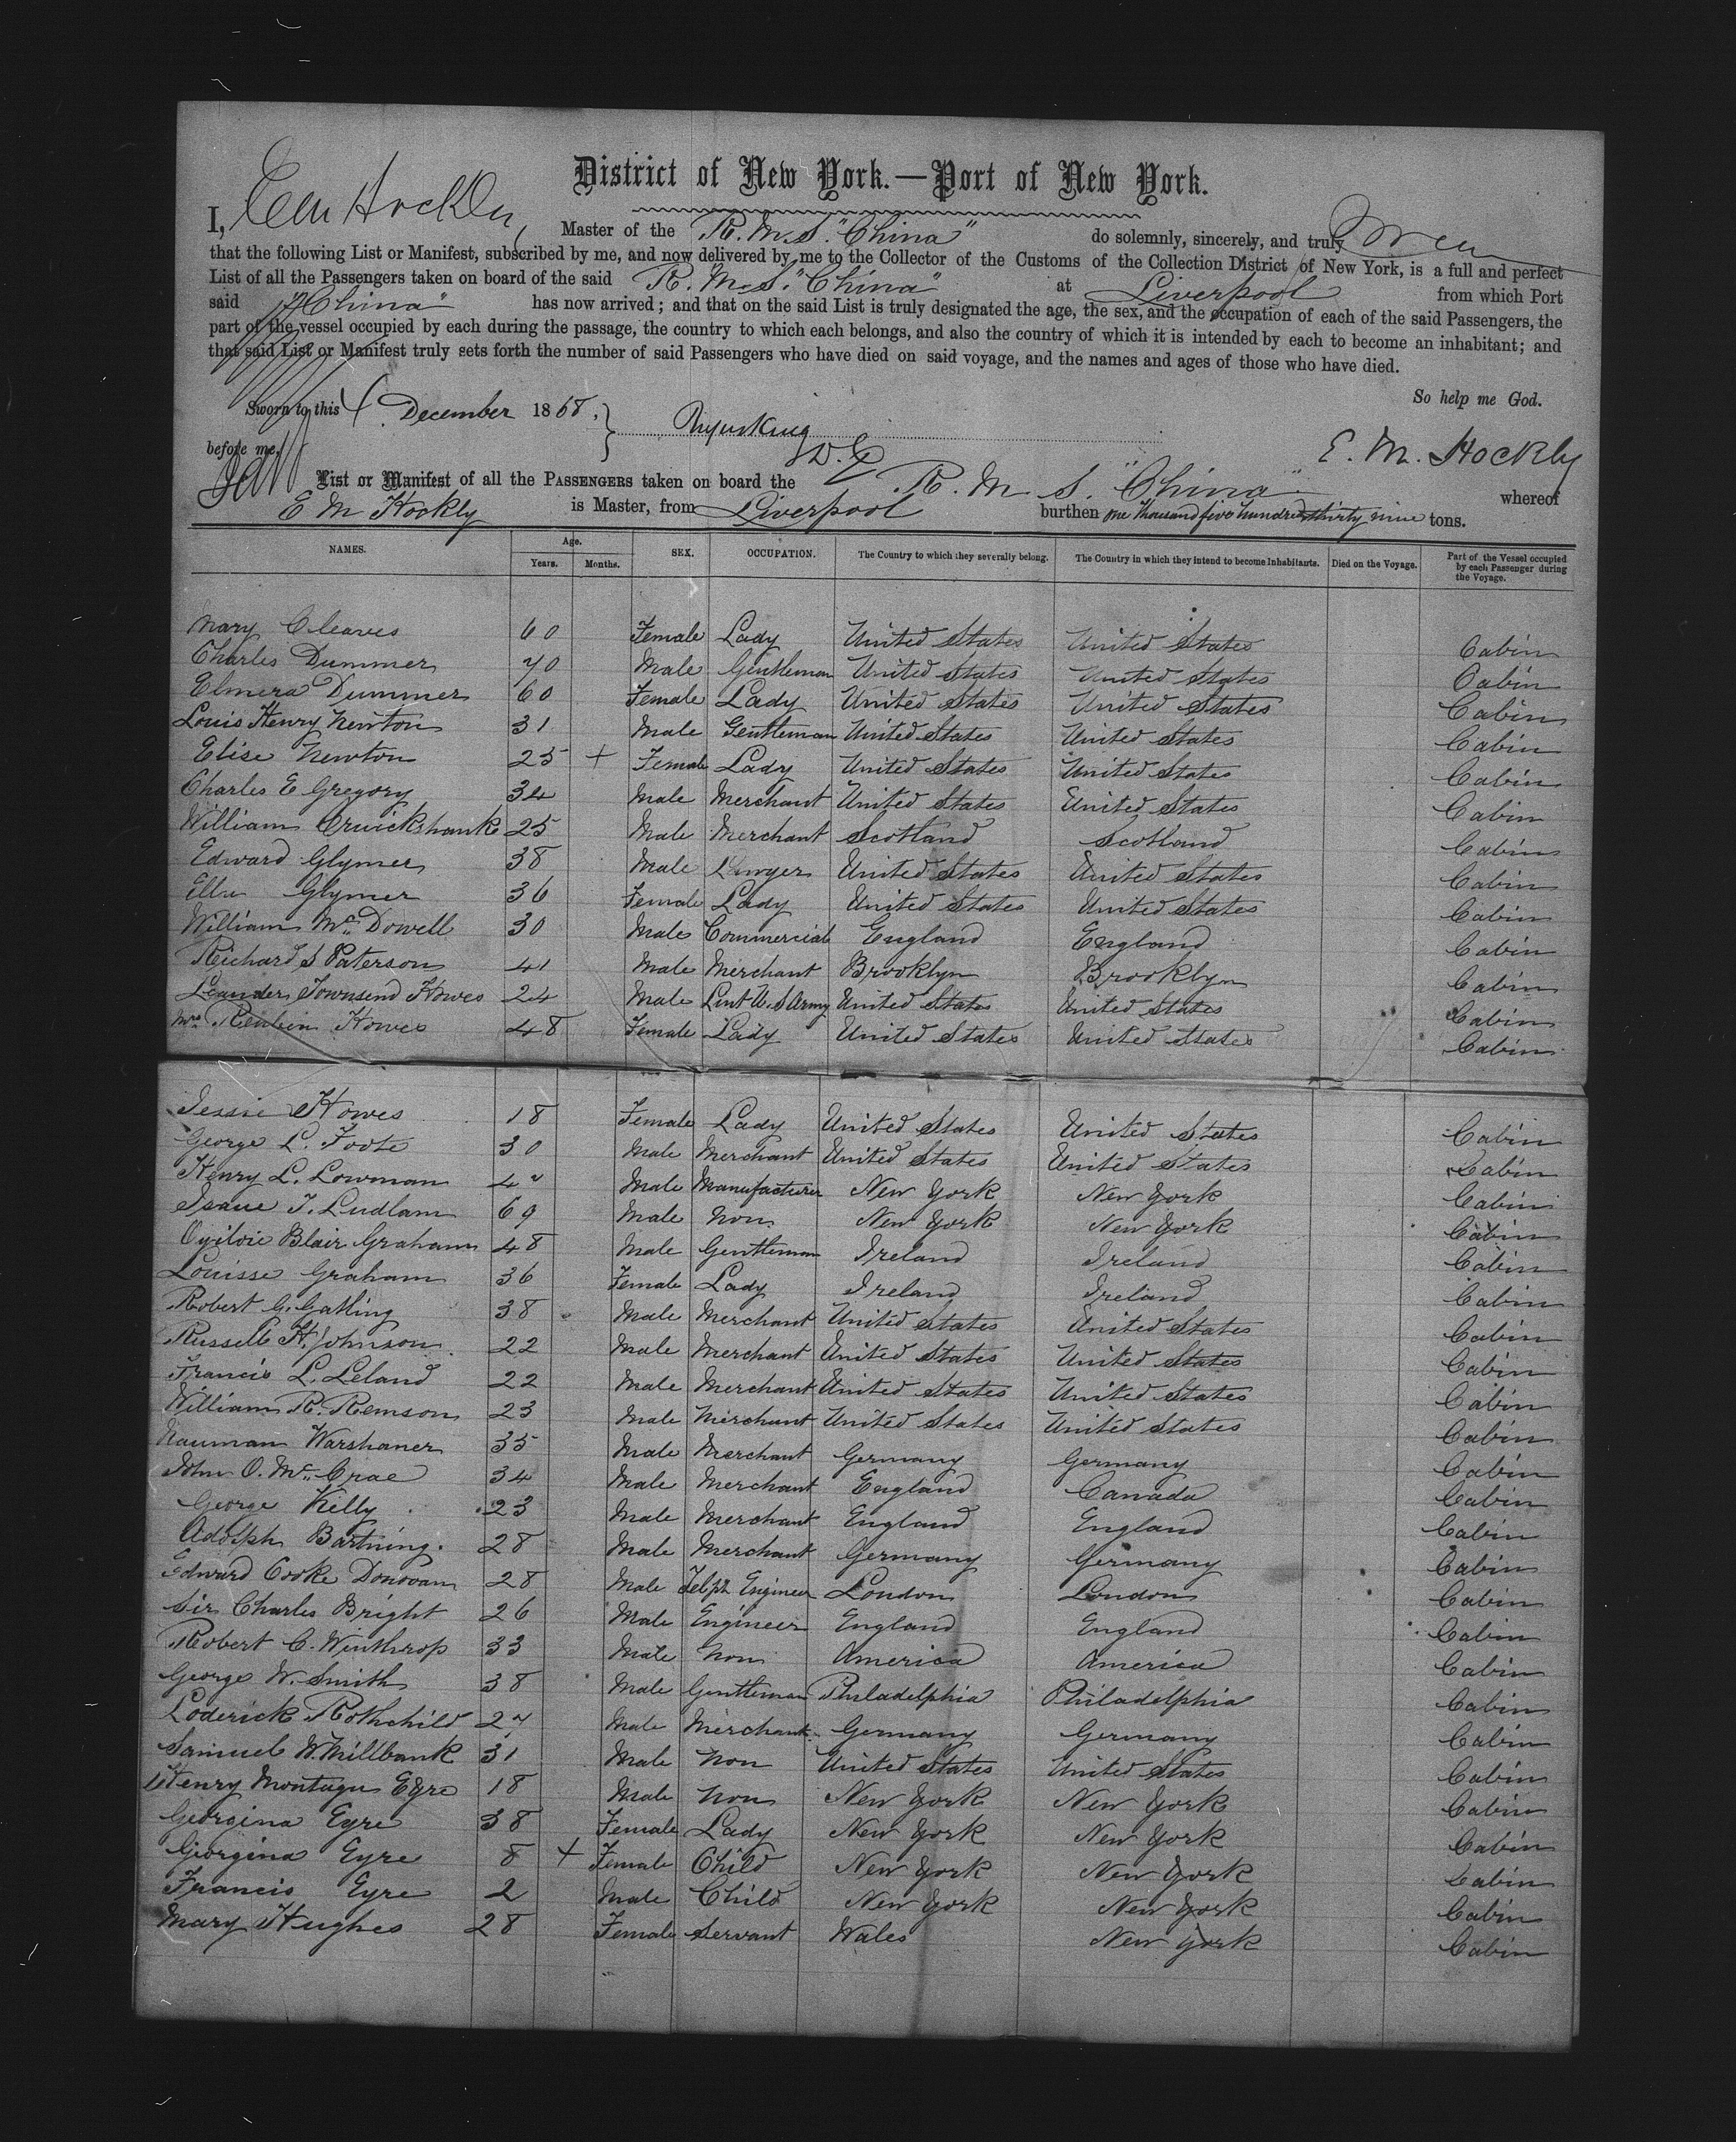 District of New York.—Port of New York.
I, E M Hockly, Master of the R. M. S. "China" do solemnly, sincerely, and truly swear
that the following List or Manifest, subscribed by me, and now delivered by me to the Collector of the Customs of the Collection District of New York, is a full and perfect
List of all the Passengers taken on board of the said R. M. S. "China" at Liverpool from which Port
said "China" has now arrived; and that on the said List is truly designated the age, the sex, and the occupation of each of the said Passengers, the
part of the vessel occupied by each during the passage, the country to which each belongs, and also the country of which it is intended by each to become an inhabitant; and
that said List or Manifest truly sets forth the number of said Passengers who have died on said voyage, and the names and ages of those who have died.
So help me God.
Sworn to this 4 December 1868.
before me. E. M. Hockly
List or Manifest of all the PASSENGERS taken on board the R. M. S. "China" whereof
E M Hockly is Master, from Liverpool burthen one thousand five hundred thirty nine tons.
NAMES. Age. Years. Months. SEX. OCCUPATION. The Country to which they severally belong. The Country in which they intend to become Inhabitants. Died on the Voyage. Part of the Vessel occupied by each Passenger during the Voyage.
Mary Cleaves 60 Female Lady United States United States Cabin
Charles Dummer 70 Male Gentleman United States United States Cabin
Elmera Dummer 60 Female Lady United States United States Cabin
Louis Henry Newton 31 Male Gentleman United States United States Cabin
Elise Newton 25 + Female Lady United States United States Cabin
Charles E Gregory 34 Male Merchant United States United States Cabin
William Cruickshank 25 Male Merchant Scotland Scotland Cabin
Edward Glymer 38 Male Lawyer United States United States Cabin
Ella Glymer 36 Female Lady United States United States Cabin
William Mc Dowell 30 Male Commercial England England Cabin
Richard S Paterson 41 Male Merchant Brooklyn Brooklyn Cabin
Leander Townsend Howes 24 Male Lieut U. S Army United States United States Cabin
Mrs Reubin Howes 48 Female Lady United States United States Cabin
Jessie Howes 18 Female Lady United States United States Cabin
George L. Foote 30 Male Merchant United States United States Cabin
Henry L. Lowman Male Manufacturer New York New York Cabin
Isaac J. Ludlam 69 Male Non New York New York Cabin
Ogilvie Blair Graham 48 Male Gentleman Ireland Ireland Cabin
Louisse Graham 36 Female Lady Ireland Ireland Cabin
Robert G. Gatling 38 Male Merchant United States United States Cabin
Russell H. Johnson 22 Male Merchant United States United States Cabin
Francis L. Leland 22 Male Merchant United States United States Cabin
William R. Remson 23 Male Merchant United States United States Cabin
Nauman Warshaner 35 Male Merchant Germany Germany Cabin
John O. Mc Crae 34 Male Merchant England Canada Cabin
George Killy 23 Male Merchant England England Cabin
Adolph Bartning. 28 Male Merchant Germany Germany Cabin
Edward Cooke Donovan 28 Male Telph Engineer London London Cabin
Sir Charles Bright 26 Male Engineer England England Cabin
Robert C. Winthrop 33 Male Non America America Cabin
George W. Smith 38 Male Gentleman Philadelphia Philadelphia Cabin
Loderick Rothchild 27 Male Merchant Germany Germany Cabin
Samuel W. Millbank 31 Male Non United States United States Cabin
Henry Montagu Eyre 18 Male Non New York New York Cabin
Georgina Eyre 38 Female Lady New York New York Cabin
Georgina Eyre 8 + Female Child New York New York Cabin
Francis Eyre 2 Male Child New York New York Cabin
Mary Hughes 28 Female Servant Wales New York Cabin